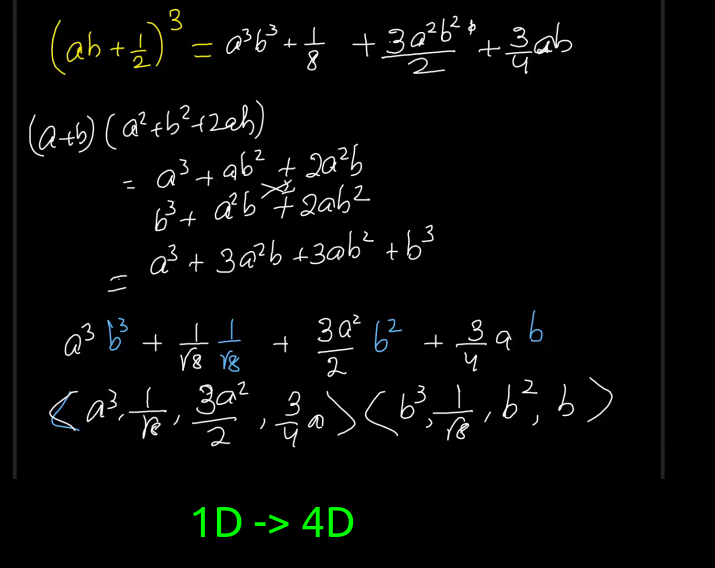 (ab + 1/2)³ = a³b³ + 1/8 + 3a²b²/2 + 3/4 ab
(a+b) (a²+b²+2ab)
= a³ + ab² + 2a²b
b³ + a²b + 2ab²
= a³ + 3a²b + 3ab² + b³
a³ b³ + 1/√8 1/√8 + 3a²/2 b² + 3/4 a b
< a³, 1/√8, 3a²/2, 3/4 a > < b³, 1/√8, b², b >
1D -> 4D